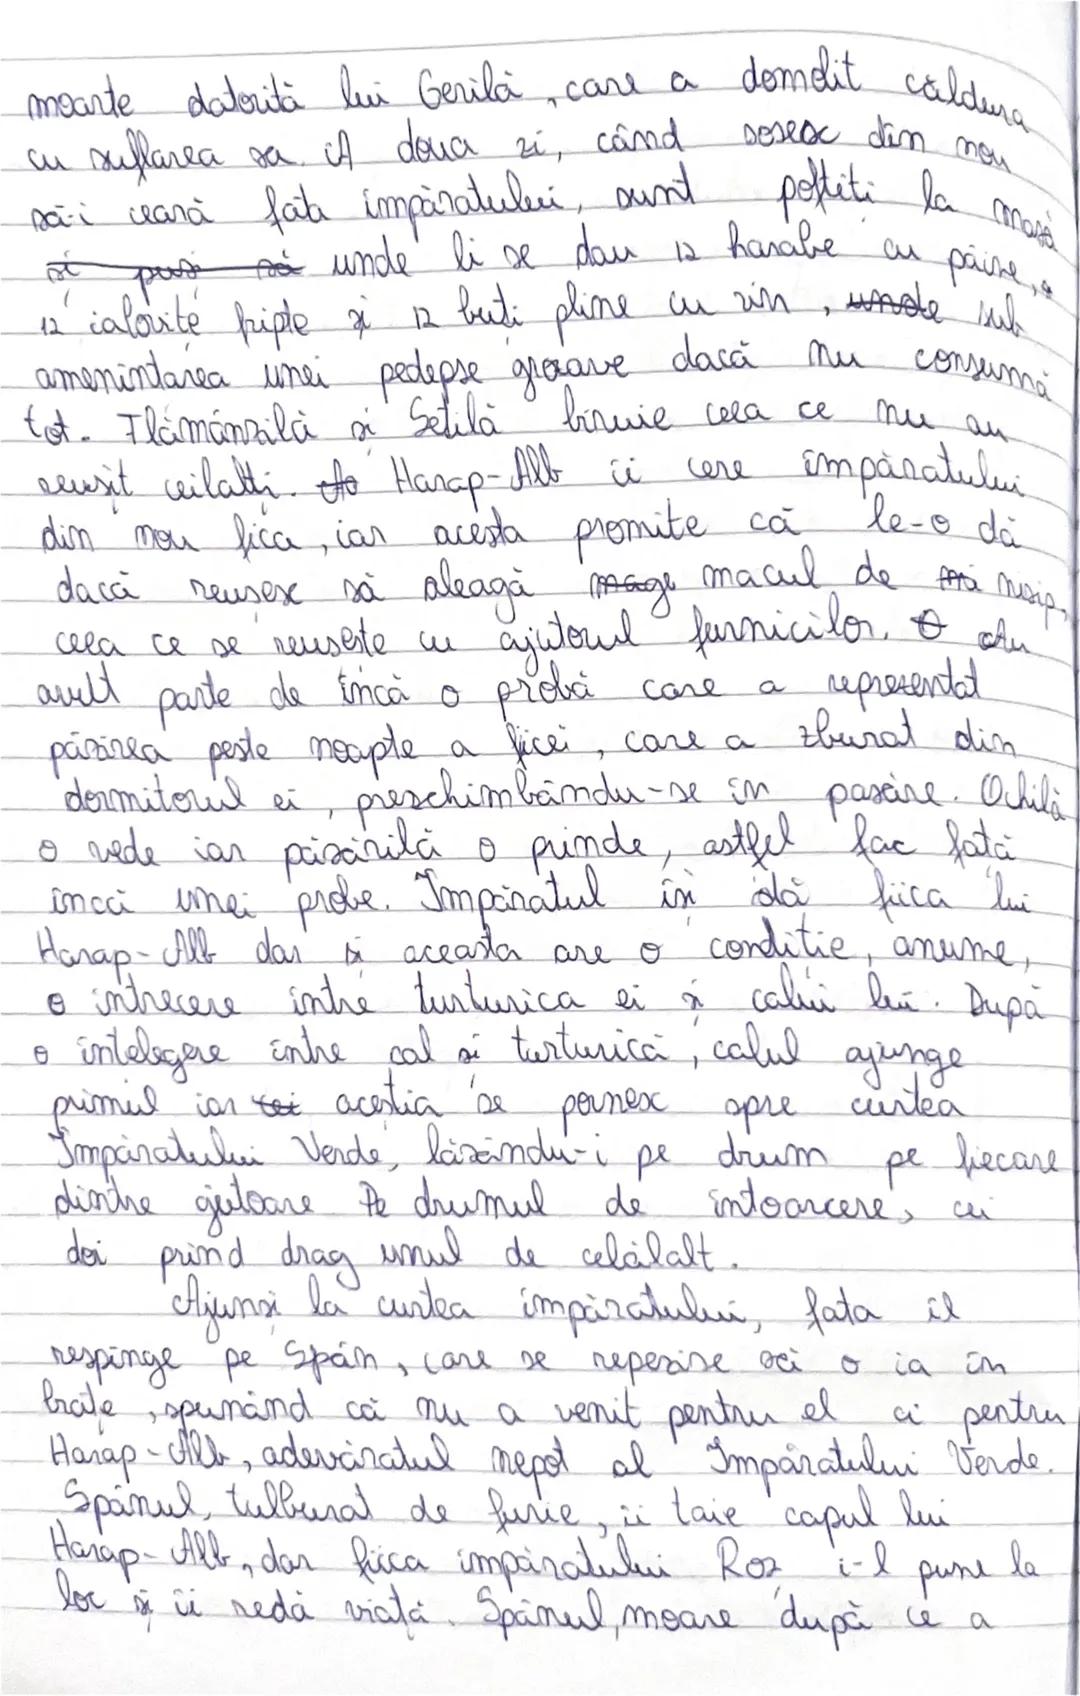 moarte datorită lui Gerilă, care a domolit căldura
cu suflarea sa. A doua zi, când sosesc din nou
să-i ceară fata împăratului, sunt poftiți la masă
și puși să unde li se dau 12 harabe cu pâine,
12 ialovițe fripte și 12 buți pline cu vin, unde sub
amenințarea unei pedepse groave dacă nu consumă
tot. Flămânzilă și Setilă biruie ceea ce nu au
reușit ceilalți. Harap-Alb îi cere împăratului
din nou fica, iar acesta promite că le-o dă
dacă reusesc să aleagă mage macul de nisip,
ceea ce se reusește cu ajutorul furnicilor. Au
avut parte de încă o probă care a reprezentat
păzirea peste noapte a ficei, care a zburat din
dormitorul ei, preschimbându-se în pasăre. Ochilă
o vede iar păsărilă o prinde, astfel fac față
încă unei probe. Împăratul îi dă fiica lui
Harap-Alb dar și aceasta are o condiție, anume,
o intrecere între turturica ei și calui lui. După
o intelegere între cal și turturică, calul ajunge
primul iar acestia se pornesc spre curtea
Împăratului Verde, lăsându-i pe drum pe fiecare
dintre ajutoare Pe drumul de întoarcere, cei
doi prind drag unul de celălalt.
Ajunși la curtea împăratului, fata îl
respinge pe Spân, care se reperise să o ia în
brațe, spunând că nu a venit pentru el ci pentru
Harap-Alb, adevăratul nepot al Împăratului Verde.
Spânul, tulburat de furie, îi taie capul lui
Harap-Alb, dar fiica împăratului Roz i-l pune la
loc și îi redă viața. Spânul, moare după ce a